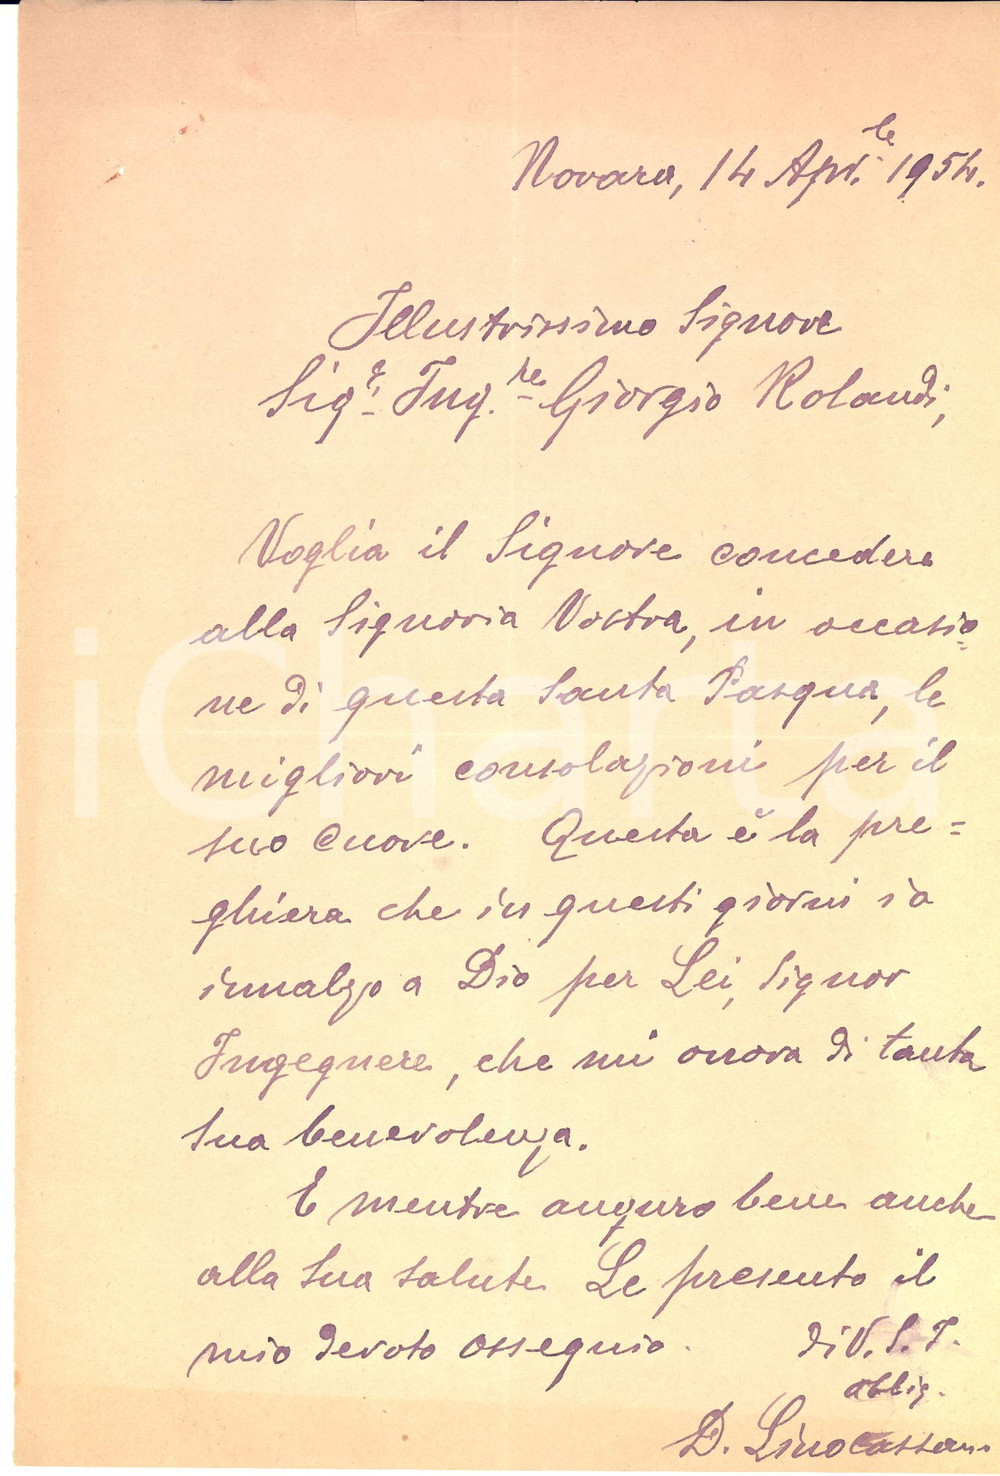 Novara, 14 Apr.le 1954.
Illustrissimo Signore
Sig.r Ing.re Giorgio Rolandi,
Voglia il Signore concedere
alla Signoria Vostra, in occasio=
ne di questa Santa Pasqua, le
migliori consolazioni per il
suo cuore. Questa è la pre=
ghiera che in questi giorni io
innalzo a Dio per Lei, Signor
Ingegnere, che mi onora di tanta
sua benevolenza.
E mentre auguro bene anche
alla sua salute Le presento il
mio devoto ossequio.
di V. S. I.
obblig.
D. Lino Cassani
iCharta